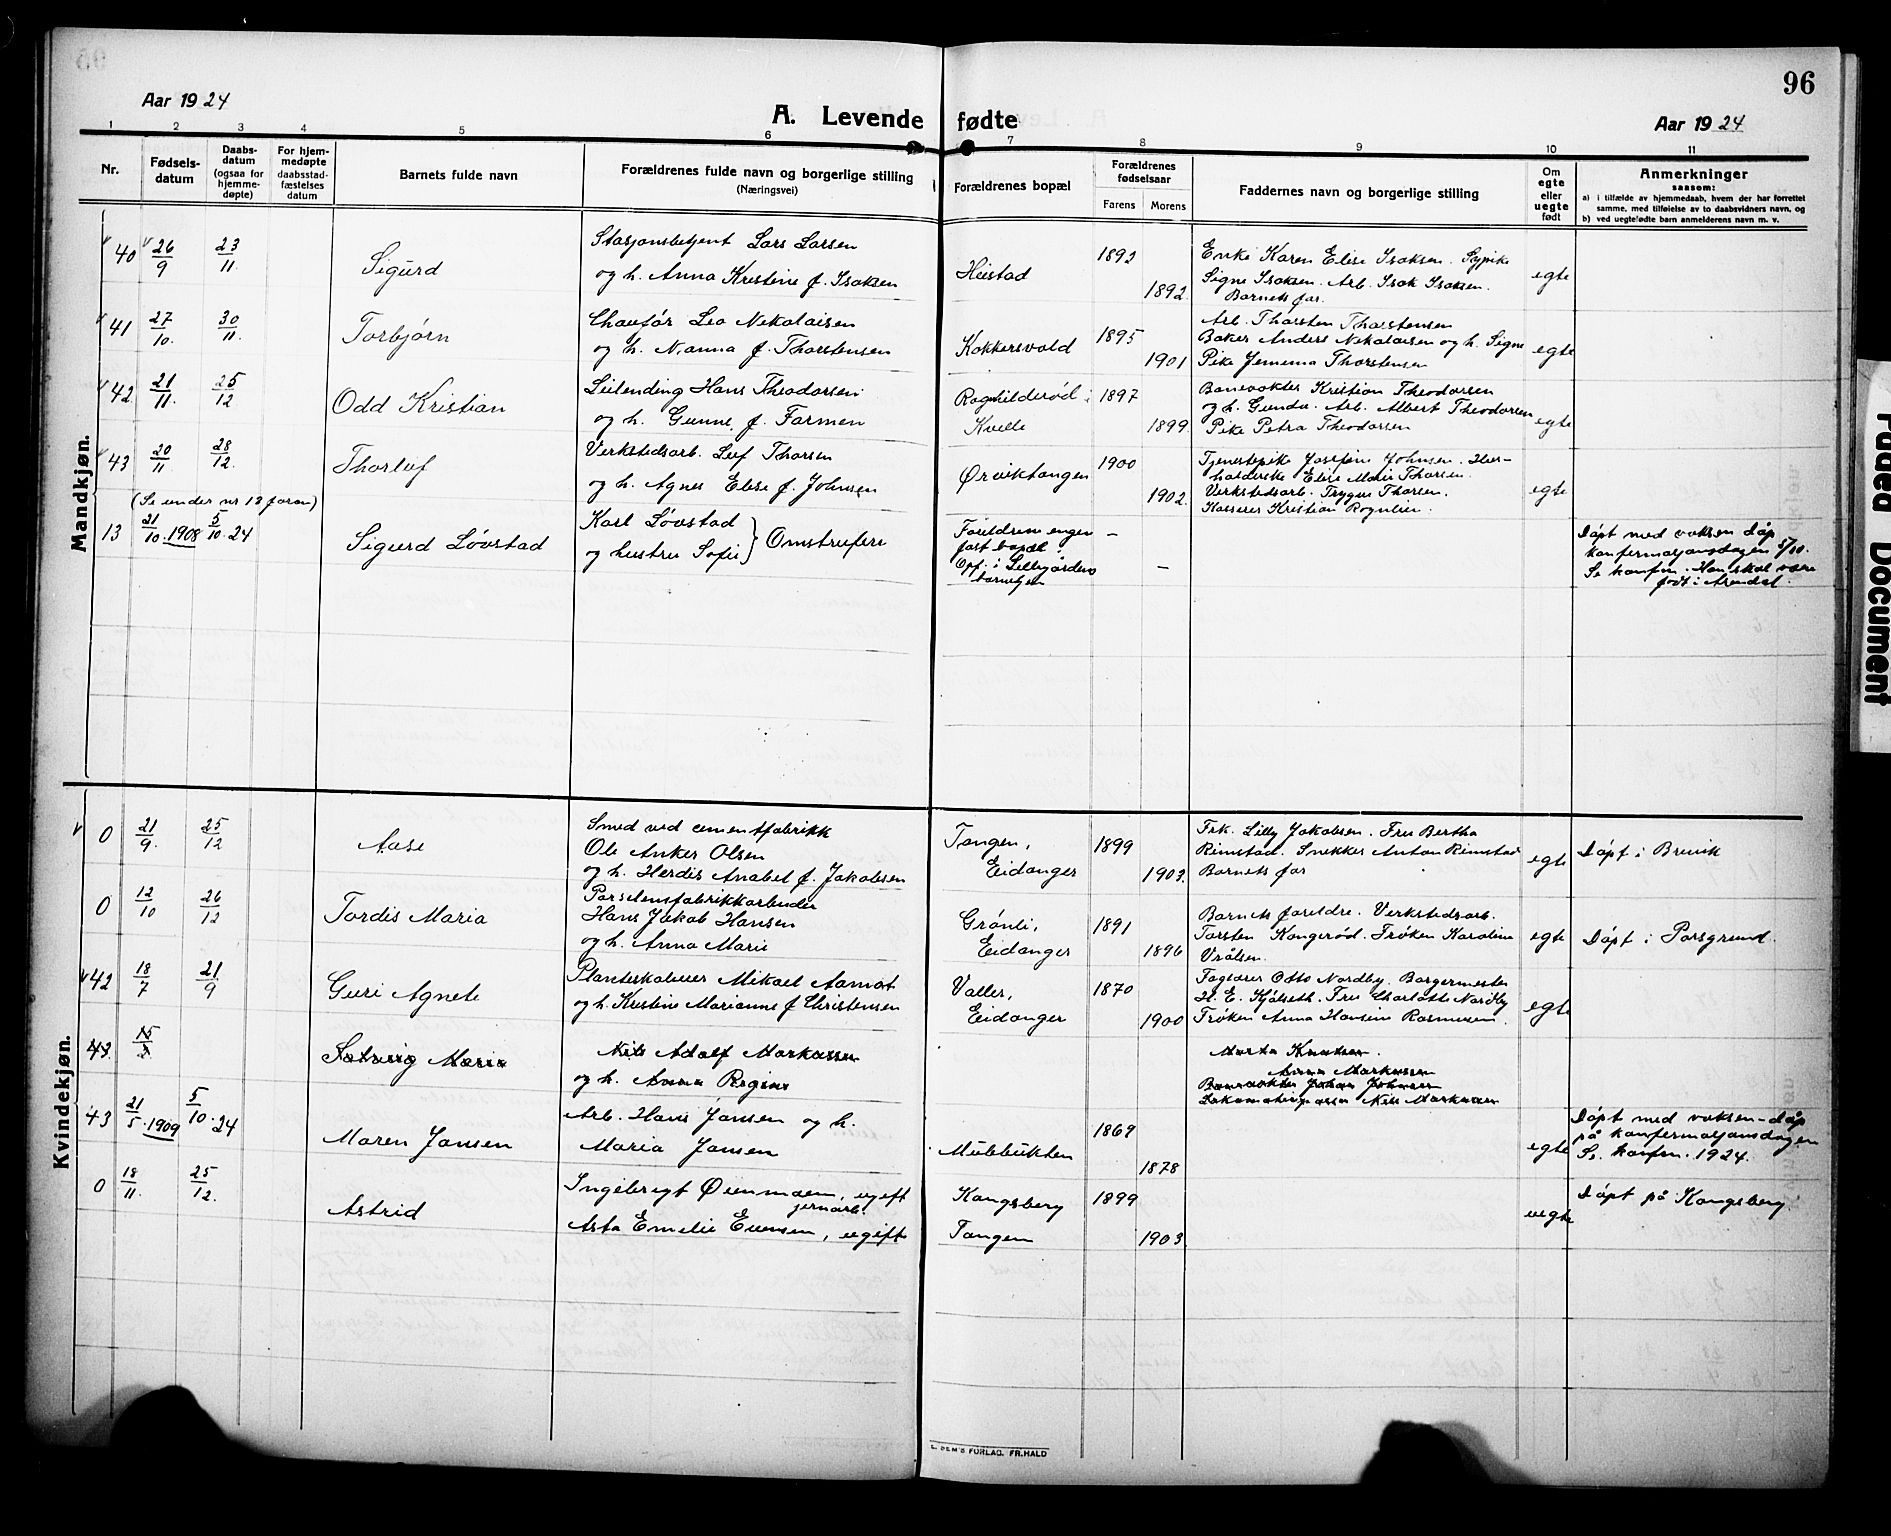 96
Aar 1924
A. Levende fødte
Aar 1924
1 2 3 4 5 6 7 8 9 10 11
Nr.
Fødsels-
datum
Daabs-
datum
(ogsaa for
hjemme-
døpte)
For hjem-
medøpte
daabsstad-
fæstelses
datum
Barnets fulde navn
Forældrenes fulde navn og borgerlige stilling
(Næringsvei)
Forældrenes bopæl
Forældrenes
fødselsaar
Farens Morens
Faddernes navn og borgerlige stilling
Om
egte
eller
uegte
født
Anmerkninger
saasom:
a) i tilfælde av hjemmedaab, hvem der har forrettet
samme, med tilføielse av to daabsvidners navn, og
b) ved uegtefødte barn anmelderens navn m. v.
Mandkjøn.
40 26/9 23/11 Sigurd
Stasjonsbetjent Lars Larsen
og h. Anna Kristine f. Isaksen
Heistad
1892
1892
Enke Karen Elise Isaksen. Sypike
Signe Isaksen. Arb. Isak Isaksen.
Barnets far.
egte
41 27/10. 30/11. Torbjørn
Chaufør Leo Nikolaisen
og h. Nanna f. Thorstensen
Kokkersvold
1895
1901
Arb. Thorsten Thorstensen
Baker Anders Nikolaisen og h. Signe
Pike Jemema Thorstensen
egte
42 21/11. 25/12 Odd Kristian
Leilending Hans Theodorsen
og h. Gunne, f. Farmen
Ragnhilderød i
Kvelle
1897
1899
Banevokter Kristian Theodorsen
og h. Gunda. Arb. Albert Theodorsen
Pike Petra Theodorsen
egte
43 20/11 28/12. Thorluf
Verkstedsarb. Leif Thorsen
og h. Agnes Elise f. Johnsen
Ørviktangen
1900
1902.
Tjenestepike Josefine Johnsen. Hus-
holderske Elise Marie Thorsen.
Verkstedsarb. Trygve Thorsen.
Kasserer Kristian Rognlien.
egte
(Se under nr 13 foran)
13 21/10. 1908 5/10. 24 Sigurd Løvstad
Karl Løvstad
og hustru Sofie } Omstreifere
Foreldrene ingen
fast bopæl.
Opf. i Lillegårdens
barnehjem
—
—
Døpt med voksen dåp
konfirmasjonsdagen 5/10.
Se konfirm. Han skal være
født i Arendal.
Kvindekjøn.
0 21/9. 25/12 Aase
Smed ved cementfabrikk
Ole Anker Olsen
og h. Herdis Anabel f. Jakobsen
Tangen,
Eidanger
1899
1903.
Frk. Lilly Jakobsen. Fru Bertha
Rimstad. Snekker Anton Rimstad
Barnets far
egte
Døpt i Brevik
0 12/10 26/12 Tordis Maria
Porselensfabrikkarbeider
Hans Jakob Hansen
og h. Anna Marie
Grønli,
Eidanger
1891
1896
Barnets foreldre. Verkstedsarb.
Torsten Kongerød. Frøken Karoline
Vrålsen.
egte
Døpt i Porsgrund.
42 18/7 21/9 Guri Agnete
Planteskoleeier Mikael Aamot
og h. Kristine Marianne f Christensen
Valler,
Eidanger
1870
1900
Faglærer Otto Nordby. Borgermester
H. E. Kjølseth. Fru Charlotte Nordby
Frøken Anna Hansine Rasmussen.
egte
43. Solveig Marie
Nils Adolf Markussen
og h. Anna Regine
Marta Knutsen.
Anna Markussen
Banevokter Johan Johnsen
Lokomotivpusser Nils Markussen
43 21/5. 1909 5/10. 24 Maren Jansen
Arb. Hans Jansen og h.
Maria Jansen
Mulebukten
1869
1878
egte
Døpt med voksen-dåp
på konfirmasjonsdagen
Se konfirm. 1924.
0 18/11. 25/12. Astrid
Ingebrigt Øienmoen, ugift
jernarb.
Asta Emelie Evensen, ugift
Kongsberg
Tangen
1899
1903.
uegte
Døpt på Kongsberg
FORLAG. FR.HALD
Faded Document